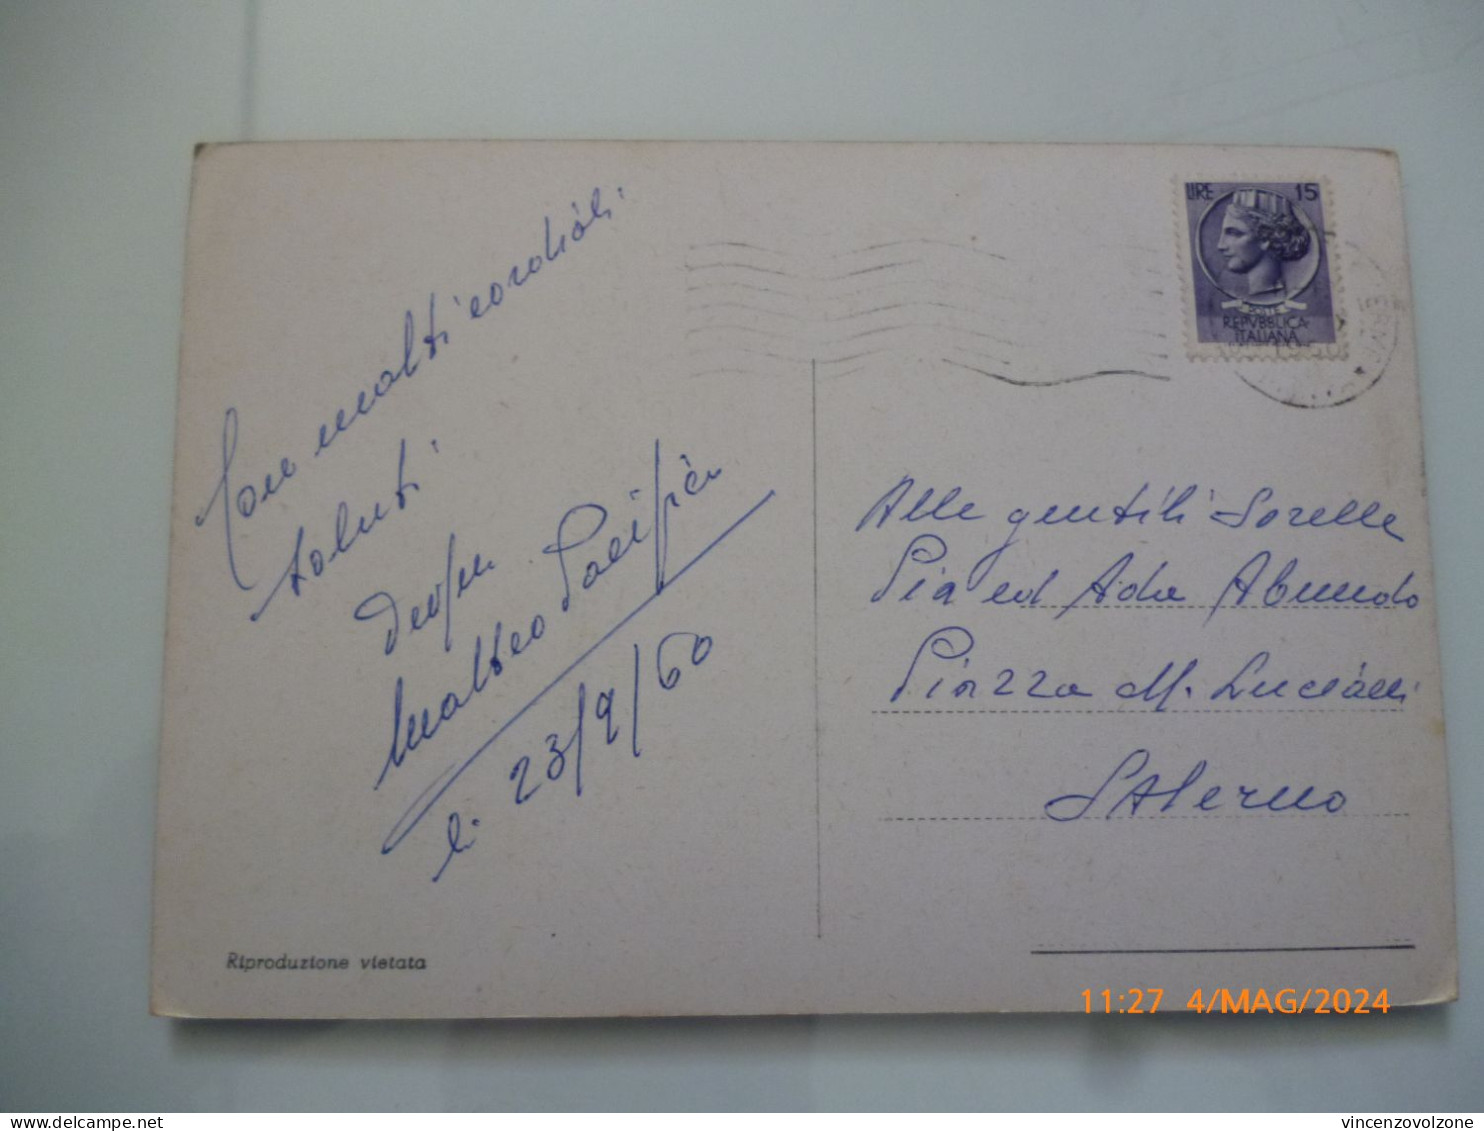 Con molti cordiali
saluti
Matteo
li 23/9/60
Riproduzione vietata
LIRE 15
POSTE
REPVBBLICA
ITALIANA
Alle gentili Sorelle
Pia ed Ada Abundo
Piazza M. Luciani
Salerno
11:27 4/MAG/2024
delcampe.net
vincenzovolzone